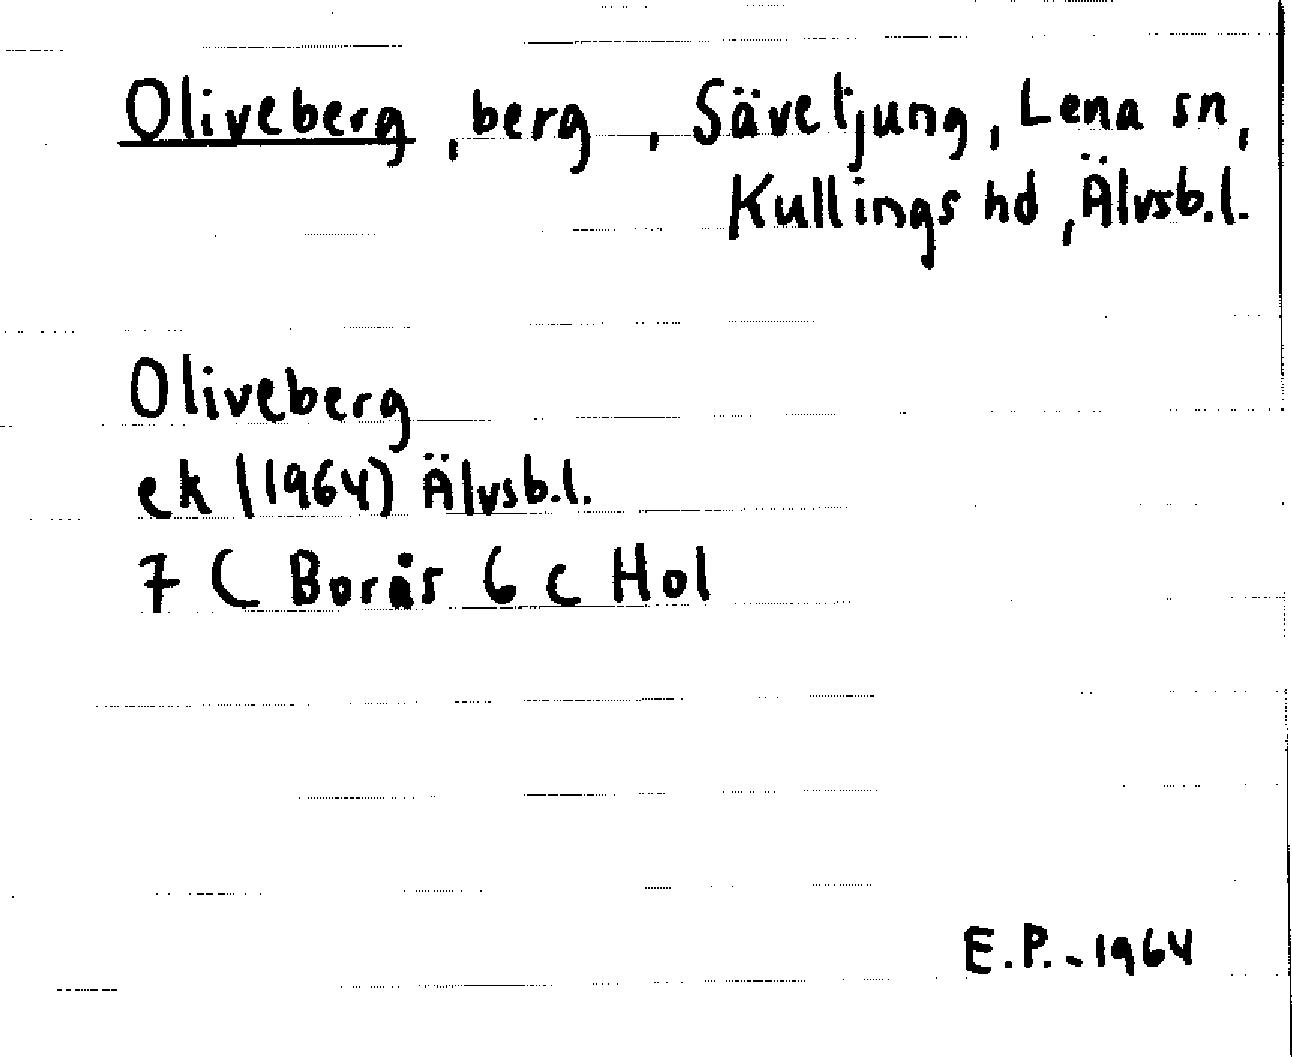 Oliveberg, berg, Sävetjung, Lena sn,
Kullings hd, Älvsb.l.
Oliveberg
ek (1964) Älvsb.l.
7 C Borås 6 c Hol
E.P. - 1964